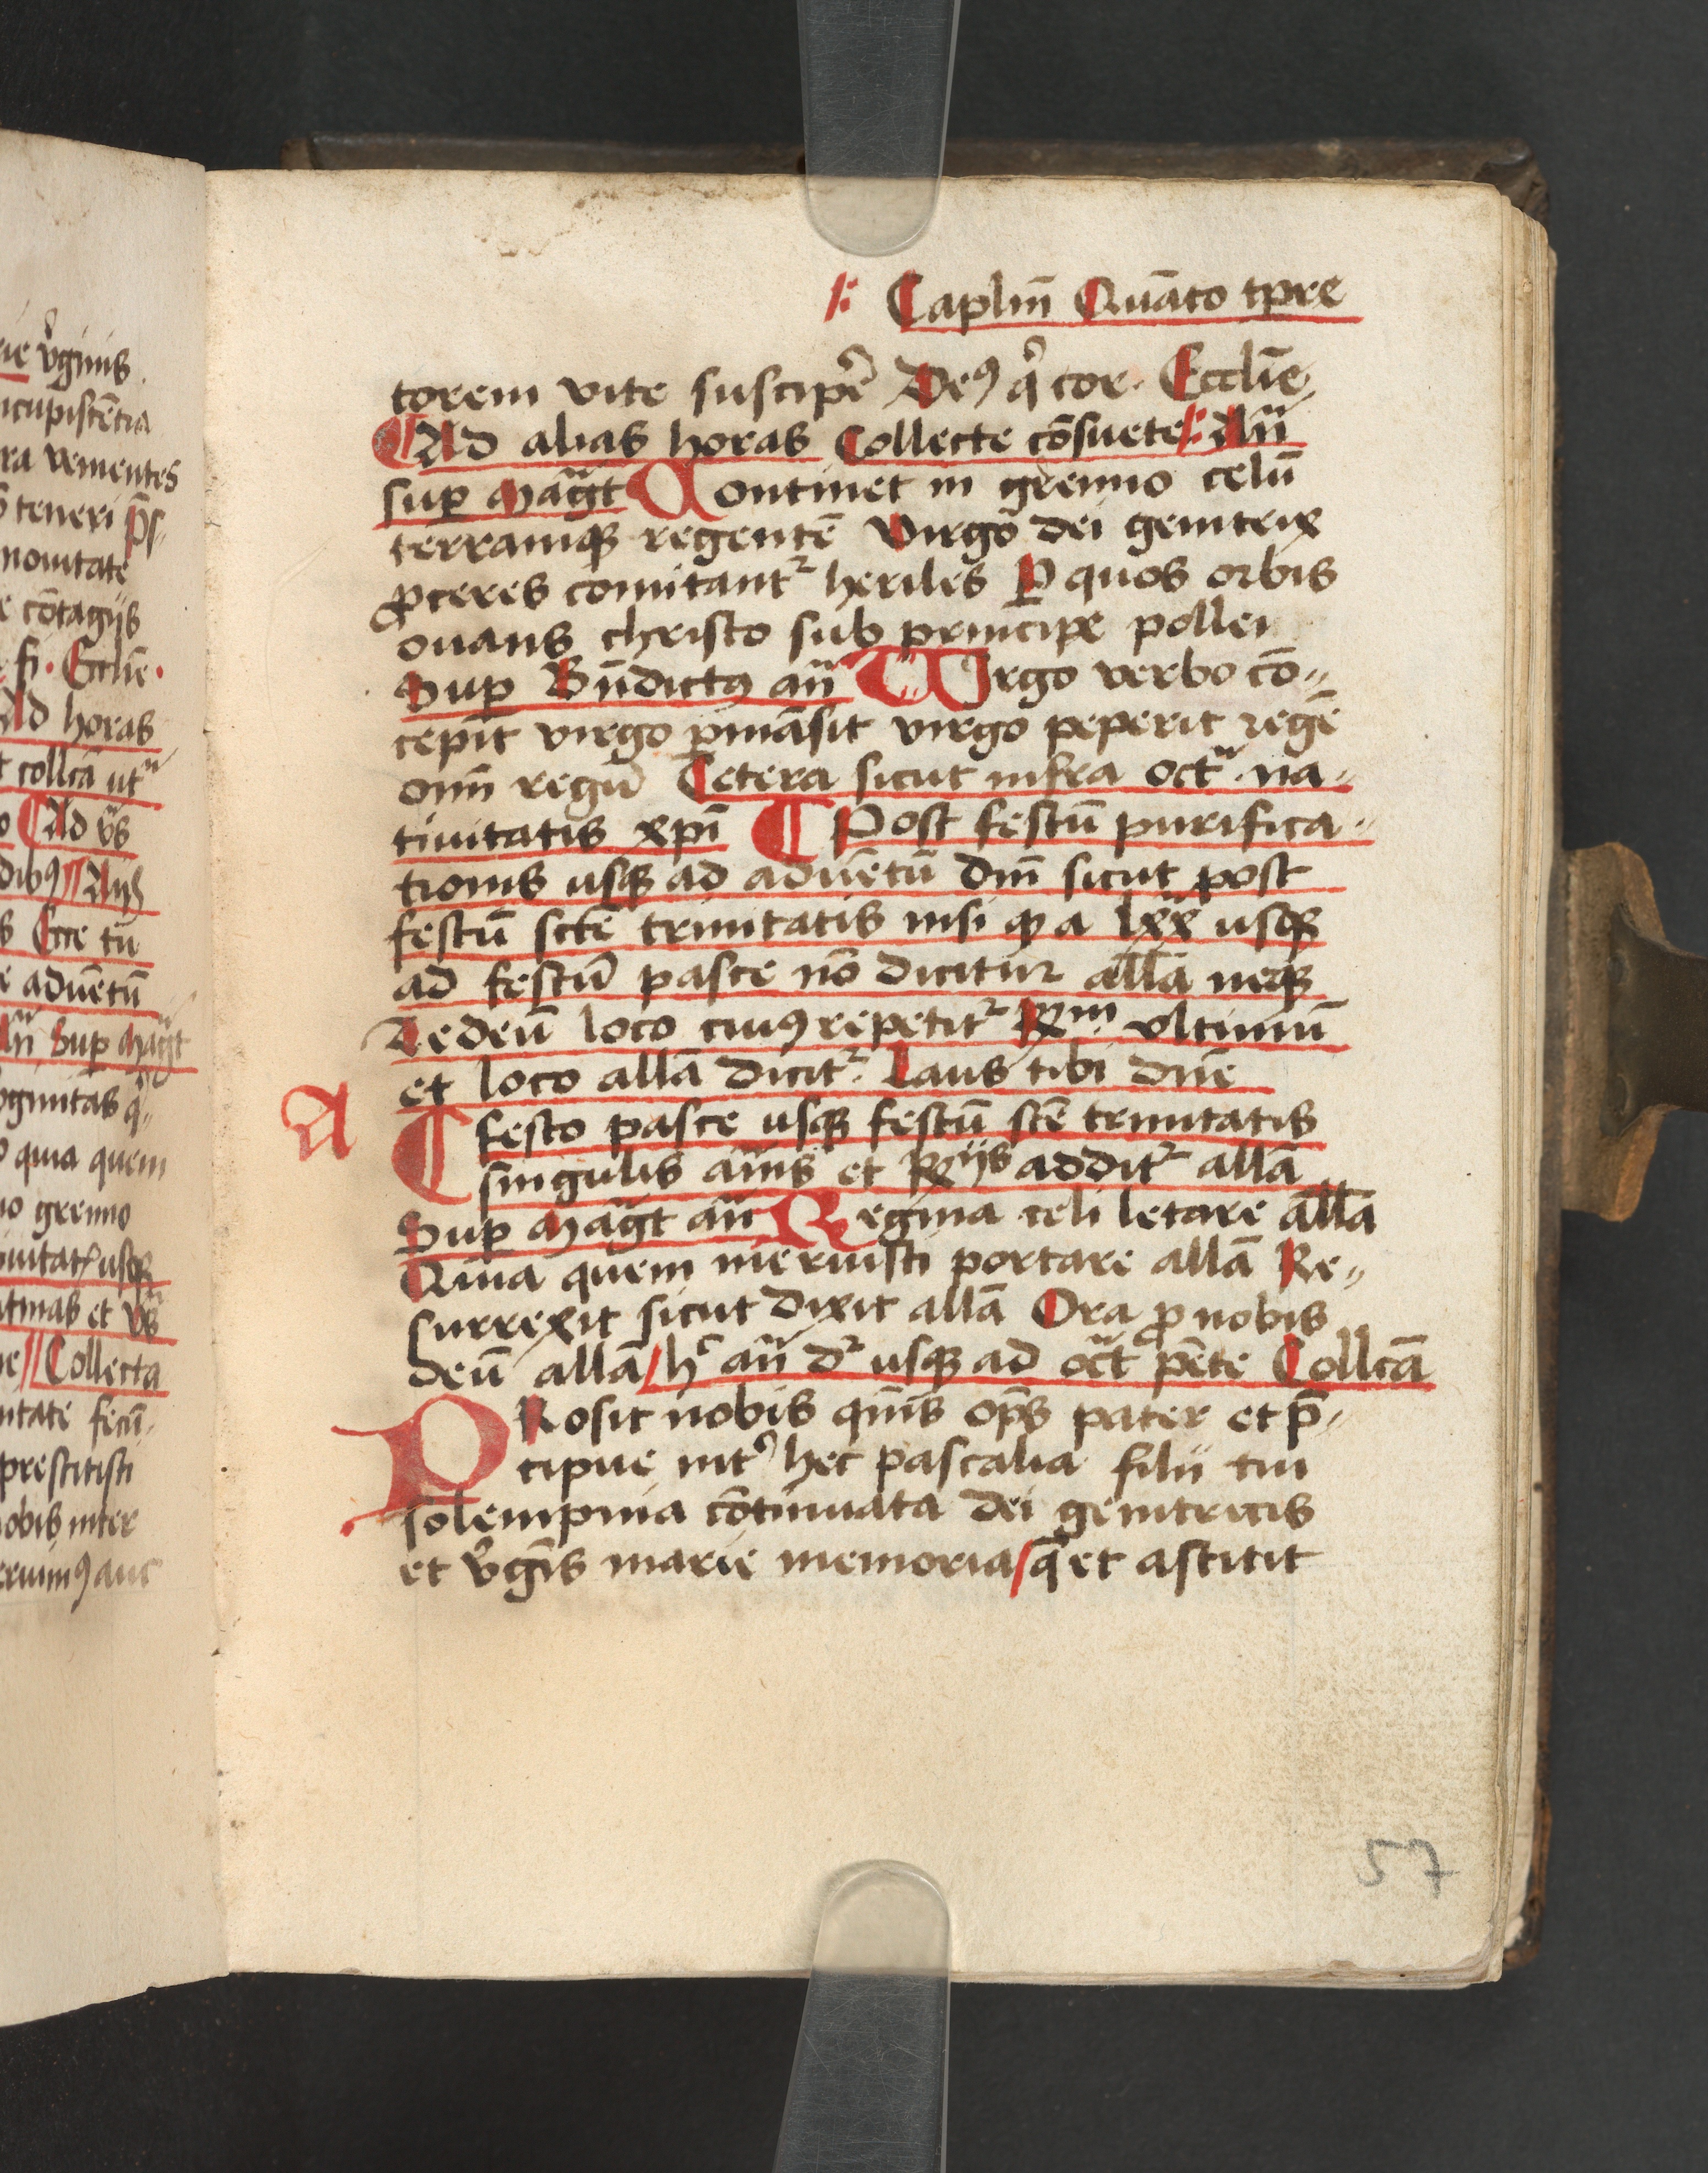 rie v̾ginis
ncupiscētia
ra venientes
teneri p̄s
nouitate
e cōtagijs
fi · Ecclie ·
Ad horas
t collcā ut
Ad v̄s
dibꝰ // Anͫ
s Ecce tu
e aduētū
Añ Sup Mag̃t
v̾ginitas q̾
quia quem
no gremio
iuitatꝭ usqꝫ
atinas et v̄s
ne // Collecta
nitate fecū
prestitisti
nobis inter
eruimꝰ auc
Caplm̄ Quāto tp̄re
torem vite suscipe᷑ Deꝰ q̾ cor · Ecclīe
¶ Ad alias horas Collecte cōsuete Añ
sup Mag̃t Continet in gremio celū
terramqꝫ regentē Virgo dei genitrix
ꝓceres comitantᷣ heriles Ꝑ quos orbis
ouans christo sub principe pollet
Sup Bn̄dictꝰ añ Virgo verbo cō⸗
cepit virgo ꝑmāsit virgo peperit regē
oīm regū Cetera sicut infra oct̃ · na⸗
tiuitatis xp̄i ¶ Post festū purifica⸗
tionis usqꝫ ad aduētū dn̄i sicut post
festū scte trinitatis nisi ꝙ a lxx usqꝫ
ad festū pasce nō dicitur allā neqꝫ
Tedeū loco cuiꝰ repetitᷣ Rm ultimū
et loco allā dicitᷣ Laus tibi dn̄e
A ¶ festo pasce usqꝫ festū scē trinitatis
singulis añis et Rijs additᷣ allā
Sup Mag̃t añ Regina celi letare allā
Quia quem meruisti portare allā Re⸗
surrexit sicut dixit allā Ora ꝓ nobis
deū allā / hᷤ añ dᷣ usqꝫ ad oct̃ pēte Collcā
PRosit nobis qm̄s op̄s pater et p̄⸗
cipue intᷣ hec pascalia filii tui
solempnia cōtinuata dei genitricis
et v̾gīs marie memoria / q̄ et astitit
57